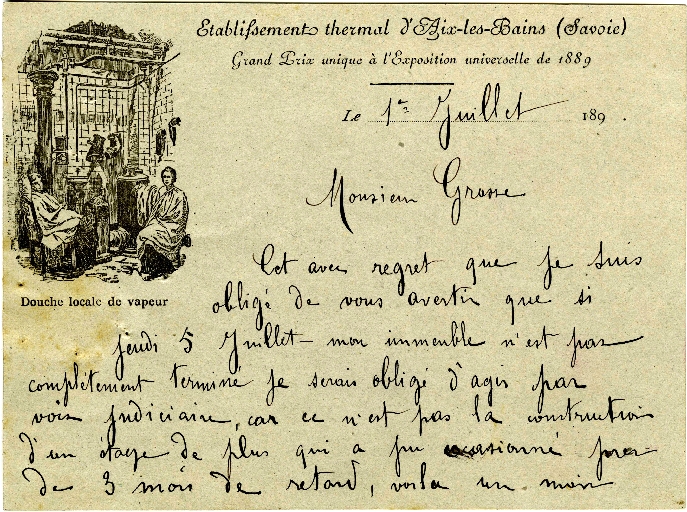 Etablissement thermal d'Aix-les-Bains (Savoie)
Grand Prix unique à l'Exposition universelle de 1889
Le 1er Juillet 189 .
Monsieur Grosse
Cet avec regret que je suis
obligé de vous avertir que si
jeudi 5 Juillet mon immeuble n'est pas
complétement terminé je serais obligé d'agir par
voix judiciaire, car ce n'est pas la construction
d'un étage de plus qui a pu occasionné pres
de 3 mois de retard, voila un mois
Douche locale de vapeur